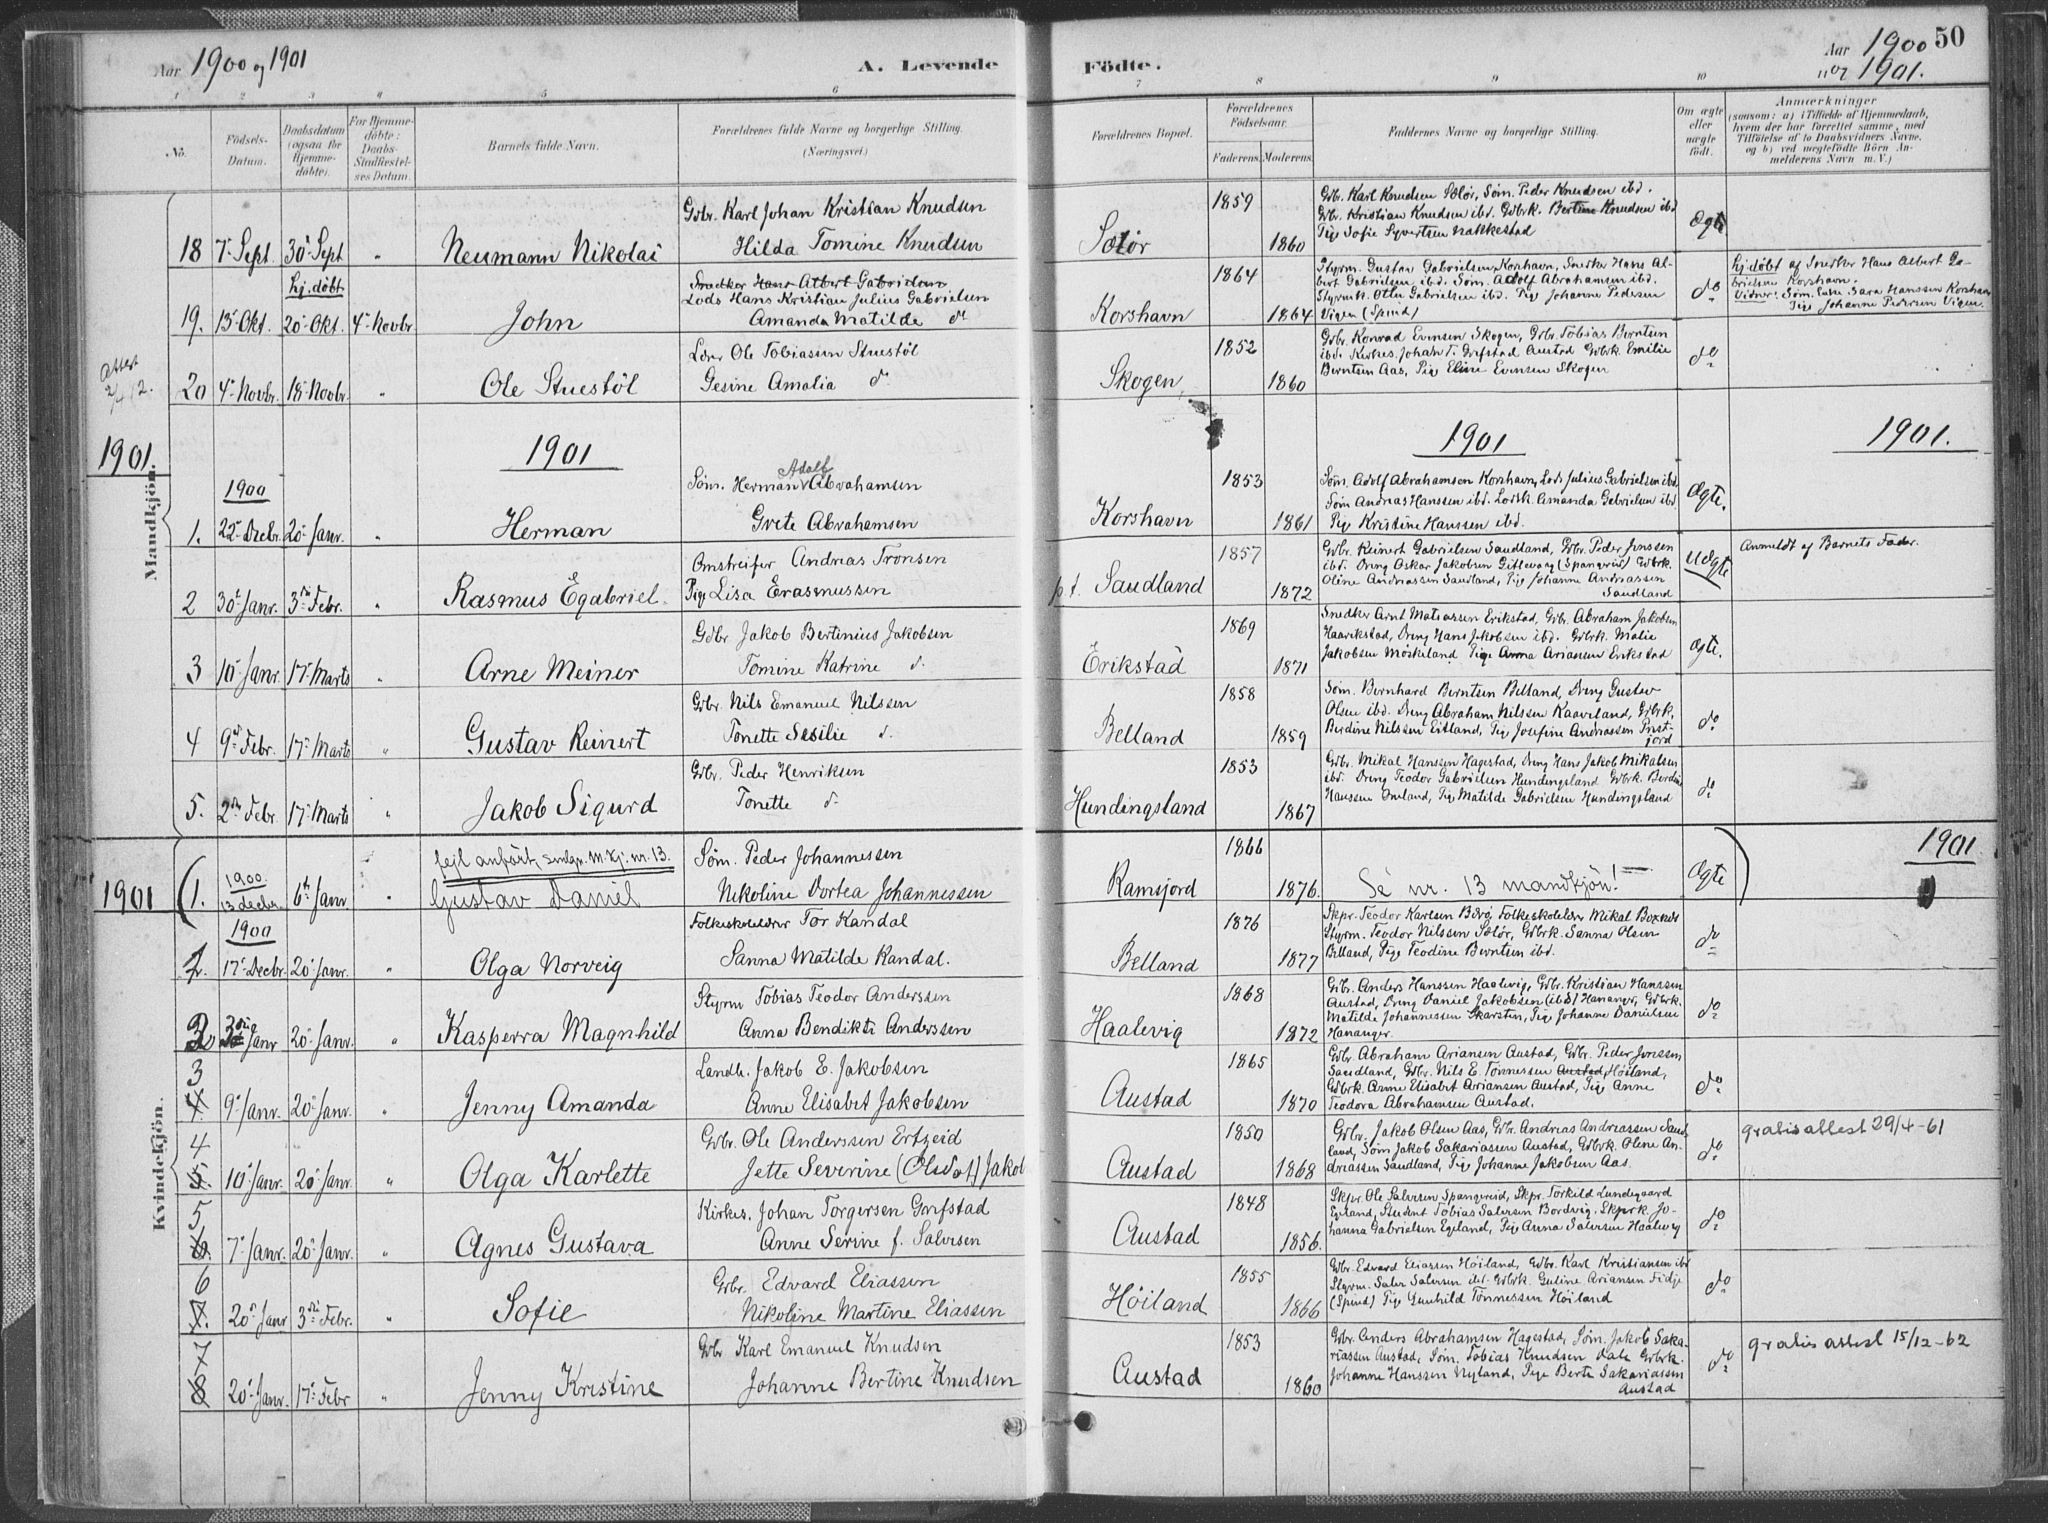 Aar 1900 og 1901
A. Levende Fødte.
Aar 1900 50
og 1901.
1 2 3 4 5 6 7 8 9 10
No.
Födsels-Datum.
Daabsdatum (ogsaa for Hjemme-döbte).
For Hjemme-döbte: Daabs-Stadfæstel-ses Datum.
Barnets fulde Navn.
Forældrenes fulde Navne og borgerlige Stilling.
(Næringsvei.)
Forældrenes Bopæl.
Forældrenes Födselsaar.
Faderens. Moderens.
Faddernes Navne og borgerlige Stilling.
Om ægte eller uægte födt.
Anmærkninger
(saasom: a) i Tilfælde af Hjemmedaab,
hvem der har forrettet samme, med
Tilföielse af to Daabsvidners Navne.
og b) ved uægtefödte Börn An-
melderens Navn m. V.)
Gdbr. Karl Johan Kristian Knudsen
Hilda Tomine Knudsen
18 7de Sept. 30te Sept. " Neumann Nikolai
Sælør 1859 1860
Gdbr. Karl Knudsen Sælør, Søm. Peder Knudsen ibd.
Gdbr. Kristian Knudsen ibd. Gdbrk. Bertine Knudsen ibd
Pige Sofie Syvertsen Nakkestad
Ægte
hj. döbt
Snedker Hans Albert Gabrielsen
Lods Hans Kristian Julius Gabrielsen
Amanda Matilde do
19. 13de Okt. 20de Okt. 4de Novbr. John
Korshavn 1864 1864
Styrm. Gustav Gabrielsen Korshavn, Snedker Hans Al-
bert Gabrielsen ibd. Søm. Adolf Abrahamsen ibd.
Styrmk. Olea Gabrielsen ibd. Pige Johanne Pedersen
Vigen (Spind)
do
hj. døbt af Snedker Hans Albert Ga-
brielsen Korshavn.
Vidner: Søm. Enke Sara Hanssen Korshavn
Pige Johanne Pedersen Vigen
Attest
2/4 12.
Lærer Ole Tobiassen Stuestöl
Gesine Amalia do
20 4de Novbr. 18de Novbr. " Ole Stuestöl
Skogen 1852 1860
Gdbr. Konrad Evensen Skogen, Gdbr. Tobias Berntsen
ibd. Kirkes. Johan T. Grefstad Austad Gdbrk. Emilie
Berntsen Aas, Pige Eline Evensen Skogen
do
1901. 1901 1901 1901.
Mandkjön.
Søm. Herman Adolf Abrahamsen
Grete Abrahamsen
1900
1. 22de Decbr. 20de Janr. " Herman
Korshavn 1853 1861
Søm. Adolf Abrahamsen Korshavn, Lods Julius Gabrielsen ibd.
Søm Andreas Hanssen ibd. Lodsk. Amanda Gabrielsen ibd
Pige Kristine Hanssen ibd.
Ægte.
Omstreifer Andreas Tronsen
Pige Lisa Erasmussen
2 30te Janr. 3die Febr. " Rasmus Egabriel.
p.t. Saudland 1857 1872
Gdbr. Reinert Gabrielsen Saudland, Gdbr. Peder Jonssen
ibd. Dreng Oskar Jakobsen Gitlevaag (Spangereid) Gdbrk.
Oline Andreassen Saudland, Pige Johanne Andreassen
Saudland
Uægte
Anmeldt af Barnets Fader.
Gdbr Jakob Bertinius Jakobsen
Tomine Katrine do
3 10de Janr. 17de Marts " Arne Meiner
Erikstad 1869 1871
Snedker Arnt Matiassen Erikstad, Gdbr. Abraham Jakobsen
Haarikstad, Dreng Hans Jakobsen ibd. Gdbrk. Malie
Jakobsen Møskeland Pige Anna Ariansen Erikstad
Ægte.
Gdbr. Nils Emanuel Nilssen
Tonette Sesilie do
4 9de Febr. 17de Marts " Gustav Reinert
Belland 1858 1859
Søm. Bernhard Berntsen Belland, Dreng Gustav
Olsen ibd. Dreng Abraham Nilssen Kaaveland, Gdbrk.
Berdine Nilssen Eitland, Pige Josefine Andreassen Prest-
jord
do
Gdbr. Peder Henriksen
Tonette do
5. 2den Febr. 17de Marts " Jakob Sigurd
Hundingsland 1853 1867
Gdbr. Mikal Hanssen Hagestad, Dreng Hans Jakob Mikalsen
ibd. Dreng Teodor Gabrielsen Hundingsland Gdbrk. Berdine
Hanssen Omland, Pige Matilde Gabrielsen Hundingsland
do
1901
fejl anfört, smlgn. M.kj. nr. 13.
1901
Søm. Peder Johannessen
Nikoline Dortea Johannessen
1. 1900. 13 Decbr. 6te Janr. " Gustav Daniel
Ramsjord 1866 1876.
Se nr. 13 mandkjön!
Ægte
Kvindekjön.
Folkeskolelærer Tor Kandal
Sanna Matilde Kandal.
1900
2. 17de Decbr. 20de Janr. " Olga Norveig
Belland 1876 1877
Skpr. Teodor Karlsen Bøvø, Folkeskolelærer Mikal Boxnes
Styrm. Teodor Nilssen Sælør, Gdbrk. Sanna Olsen
Belland, Pige Teodine Berntsen ibd.
do
Styrm Tobias Teodor Anderssen
Anna Bendikte Anderssen
3. 3die Janr 20de Janr. " Kasperra Magnhild
Haalevig 1868 1872
Gdbr. Anders Hanssen Haalevig, Gdbr. Kristian Hanssen
Austad, Dreng Daniel Jakobsen (ibd) Hananger, Gdbrk.
Matilde Johannessen Skarsten, Pige Johanne Danielsen
Hananger.
do
Landh. Jakob E. Jakobsen
Anne Elisabet Jakobsen
3
4. 9de Janr. 20de Janr. " Jenny Amanda
Austad 1865 1870
Gdbr. Abraham Ariansen Austad, Gdbr. Peder Jonssen
Saudland, Gdbr. Nils E. Tønnessen Austad, Höiland,
Gdbrk. Anne Elisabet Ariansen Austad, Pige Anne
Teodora Abrahamsen Austad.
do
Gdbr. Ole Anderssen Ertzeid
Jette Severine (Olsdat) Jakob
4
5. 10de Janr. 20de Janr. " Olga Karlette
Austad 1850 1868
Gdbr. Jakob Olsen Aas, Gdbr. Andreas Andreassen Saud-
land, Søm Jakob Sakariassen Austad, Gdbrk. Olene An-
dreassen Saudland, Pige Johanne Jakobsen Aas.
do
gratisattest 29/4-61
Kirkes. Johan Torgersen Grefstad
Anne Serine f. Salvesen
5
6. 7de Janr. 20de Janr. " Agnes Gustava
Austad 1848 1856.
Skpr. Ole Salvesen Spangereid, Skpr. Torkild Lundegaard
Egeland, Student Tobias Salvesen Bordvig. Skprk. Jo-
hanna Gabrielsen Egeland, Pige Anna Salvesen Haalevig
do
Gdbr. Edvard Eliassen
Nikoline Martine Eliassen
6
7. 20de Janr 3die Febr. " Sofie
Höiland 1855 1866
Gdbr. Edvard Eliassen Höiland, Gdbr. Karl Kristiansen ibd
Styrm. Salve Salvesen ibd. Gdbrk. Guline Ariansen Fidje
(Spind) Pige Gunhild Tønnessen Höiland
do
Gdbr Karl Emanuel Knudsen
Johanne Bertine Knudsen
7
8 20de Janr. 17de Febr " Jenny Kristine
Austad 1853 1860
Gdbr. Anders Abrahamsen Hagestad, Søm. Jakob Saka-
riassen Austad, Søm. Tobias Knudsen Dale Gdbrk.
Johanne Hanssen Nyland, Pige Berte Sakariassen
Austad
do
gratis attest 15/12-62